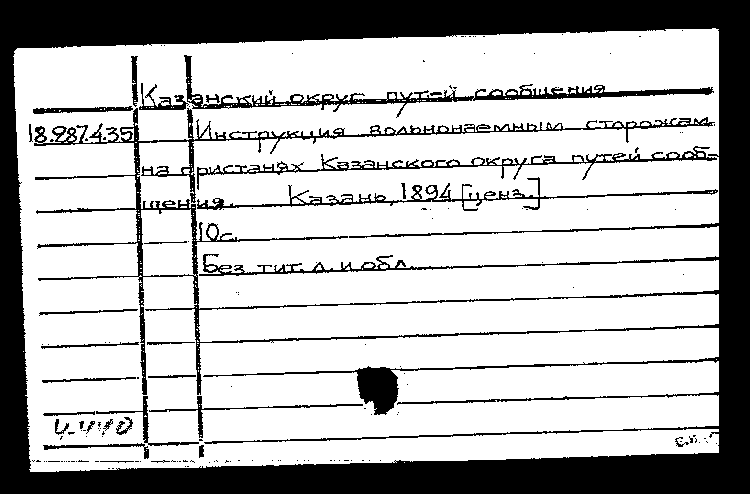 Казанский округ путей сообщения
18.987.4.35 Инструкция вольнонаемным сторожам
на пристанях Казанского округа путей сооб-
щения. Казань, 1894 [ценз.]
10с.
Без тит. л. и обл.
4-440